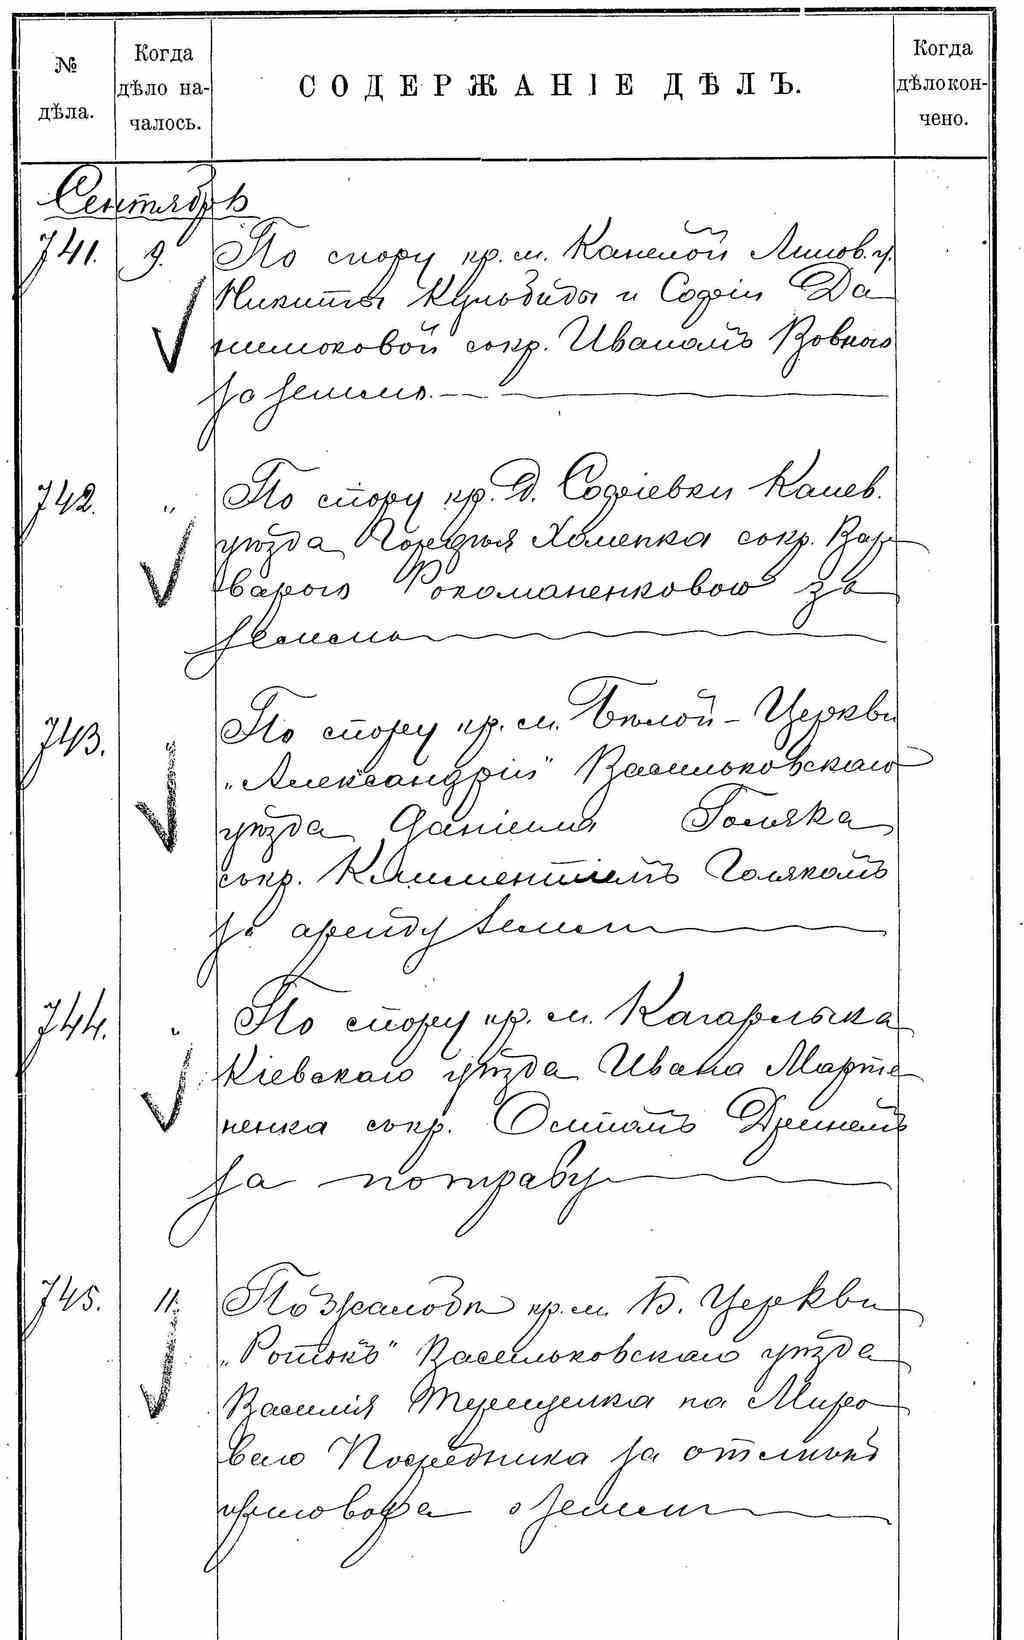 № дѣла.
Когда дѣло на-
чалось.
СОДЕРЖАНІЕ ДѢЛЪ.
Когда дѣло кон-
чено.
Сентябрь
741. 9. По спору кр. м. Канелой Липов. у.
Никиты Кульбиды и Софіи Да
нилюковой съ кр. Иваномъ Вовкого
за землю.
742. " По спору кр. д. Софіевки Канев.
уѣзда Гордѣя Хоменка съ кр. Вар
варою Рокоманенковою за
землю
743. " По спору кр. м. Бѣлой-Церкви
"Александріи" Васильковскаго
уѣзда Даніила Голяка
съ кр. Климентіемъ Голякомъ
за аренду земли
744. " По спору кр. м. Кагарлыка
Кіевскаго уѣзда Ивана Марти
ненка съ кр. Остапомъ
за потраву
745. 11. По жалобѣ кр. м. Б. Церкви
"Ротокъ" Васильковскаго уѣзда
Василія Терещенка на Миро
ваго Посредника за отмѣну
приговора о земли